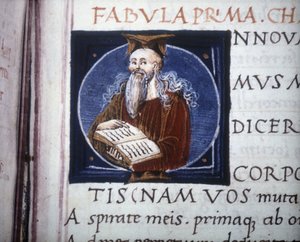 FABVLA PRIMA. CH
NNOVA
MVS M
DICER
CORPO
TIS (NAM VOS muta
A spirate meis. primaq; ab o